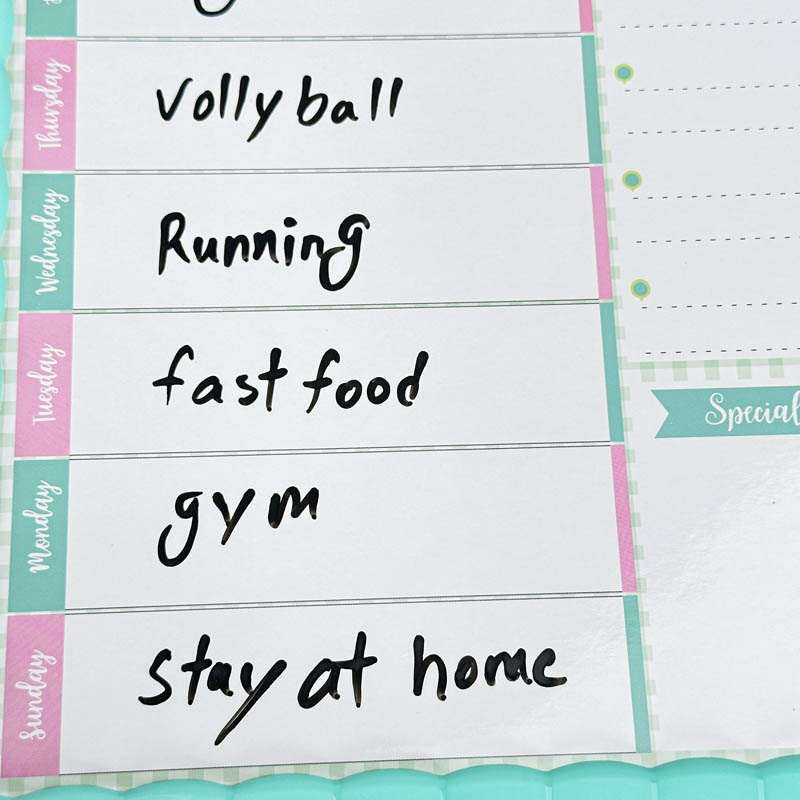 Thursday
Volly ball
Wednesday
Running
Tuesday
fast food
Monday
gym
Sunday
stay at home
Special